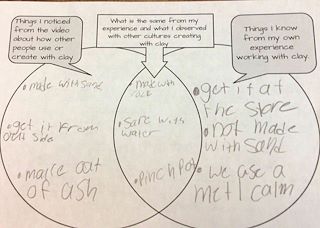 Things I noticed
from the video
about how other
people use or
create with clay
What is the same from my
experience and what I observed
with other cultures creating
with clay
Things I know
from my own
experience
working with clay.
• made with sand
• get it from
out side
• made out
of ash
made with
• safe with
water
• Pinch Pot
• get it at
the store
• not made
with sand
• we use a